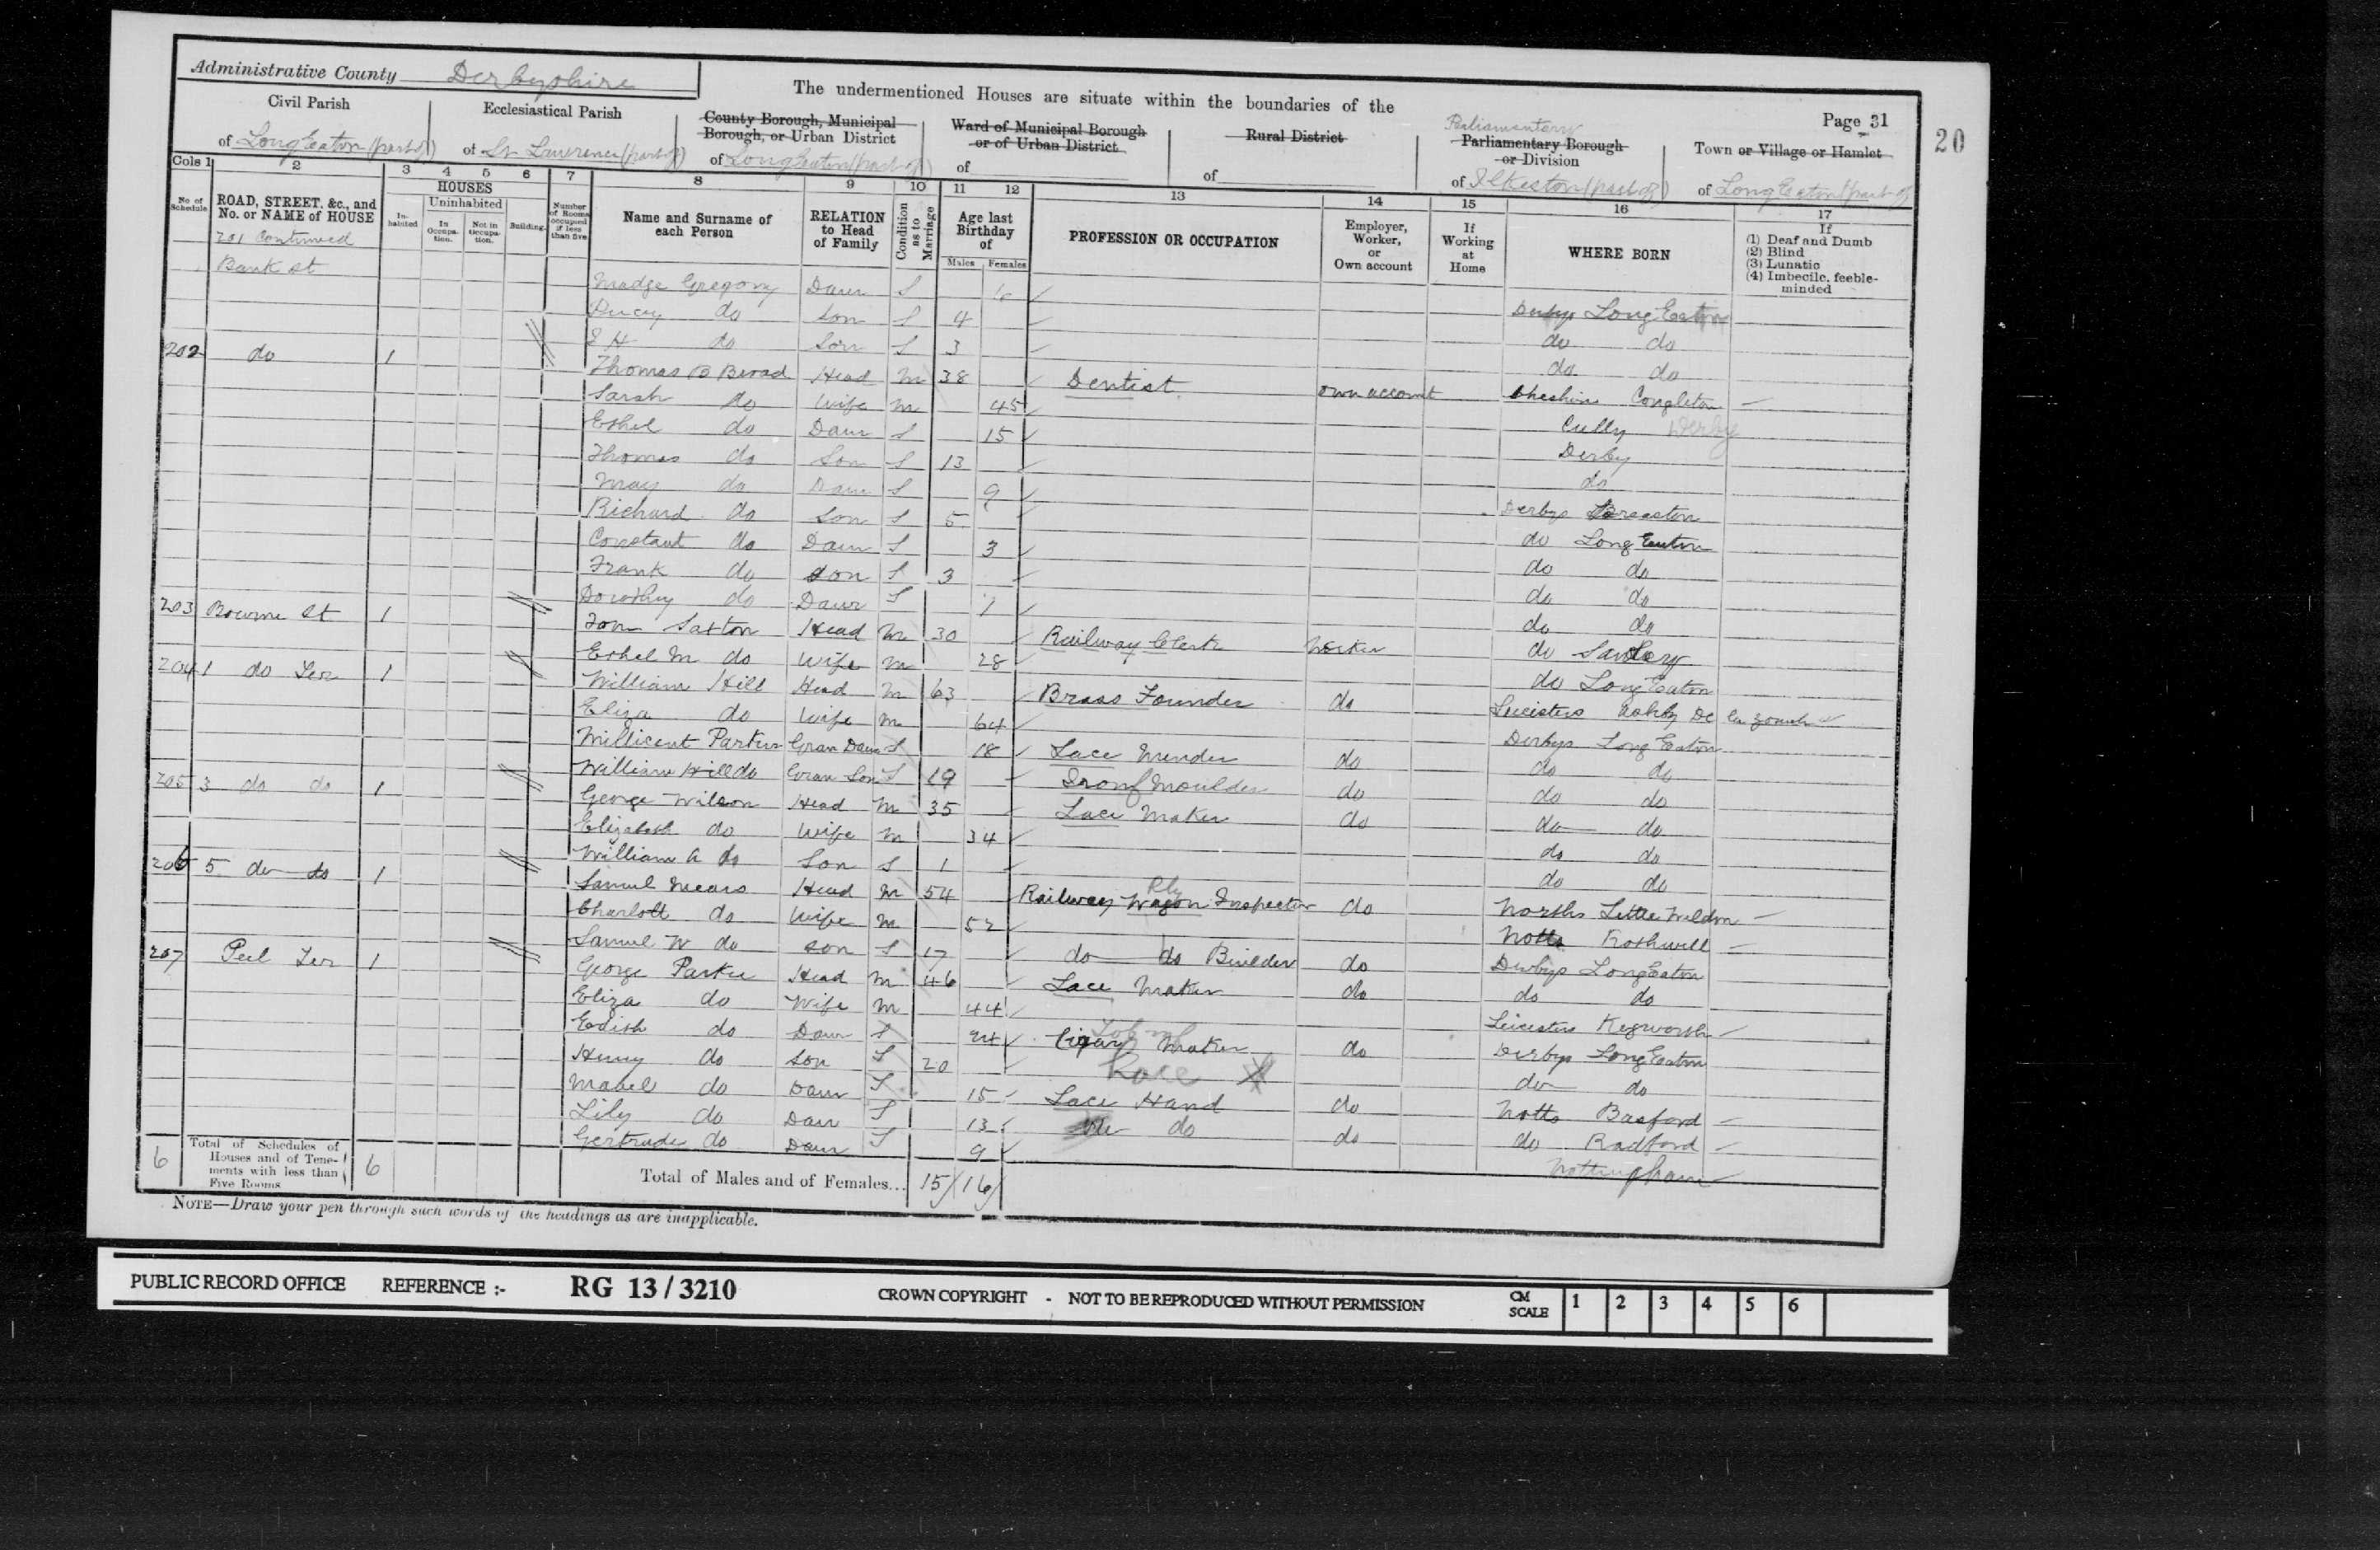 Administrative County Derbyshire
The undermentioned Houses are situate within the boundaries of the
Page 31
20
Civil Parish
of Long Eaton (part of)
Ecclesiastical Parish
of St Lawrence (part of)
County Borough, Municipal Borough, or Urban District
of Long Eaton (part of)
Ward of Municipal Borough or of Urban District
of
Rural District
of
Parliamentary
Parliamentary Borough or Division
of Ilkeston (part of)
Town or Village or Hamlet
of Long Eaton (part of)
Cols 1 2 3 4 5 6 7 8 9 10 11 12 13 14 15 16 17
No of Schedule
ROAD, STREET, &c., and No. or NAME of HOUSE
HOUSES
Inhabited
Uninhabited
In Occupation.
Not in Occupation.
Building.
Number of Rooms occupied if less than five
Name and Surname of each Person
RELATION to Head of Family
Condition as to Marriage
Age last Birthday of
Males Females
PROFESSION OR OCCUPATION
Employer, Worker, or Own account
If Working at Home
WHERE BORN
If
(1) Deaf and Dumb
(2) Blind
(3) Lunatic
(4) Imbecile, feeble-minded
201 Continued
Bank St
Madge Gregory Daur S
Percy do Son S 4 Derbys Long Eaton
E H do Son S 3 do do
202 do 1 Thomas B Broad Head M 38 Dentist own account do do
Sarah do Wife M 45 Cheshire Congleton
Ethel do Daur S 15 Derby
Thomas do Son S 13 Derby
May do Daur S 9 do
Richard do Son S 5 Derbys Breaston
Constant do Daur S 3 do Long Eaton
Frank do Son S 3 do do
Dorothy do Daur S 1 do do
203 Bourne St 1 Saxton Head M 30 Railway Clerk Worker do do
Ethel M do Wife M 28 do
204 1 do Ter 1 William Hill Head M 63 Brass Founder do do Long Eaton
Eliza do Wife M 64 Leicesters Ashby De la zouch
Millicent Parker Gran Daur S 18 Lace Mender do Derbys Long Eaton
William Hill do Gran Son S 19 Iron Moulder do do do
205 3 do do 1 George Wilson Head M 35 Lace Maker do do do
Elizabeth do Wife M 34 do do
William A do Son S 1 do do
206 5 do do 1 Samuel Mears Head M 54 Railway Wagon Inspector do do do
Rly
Charlott do Wife M 52 Norths Little Weldon
Samuel W do Son S 17 do do Builder do Rothwell
207 Peel Ter 1 George Parker Head M 46 Lace Maker do Derbys Long Eaton
Eliza do Wife M 44 do do
Edith do Daur S 24 Cigar Maker do Leicesters Kegworth
Henry do Son S 20 Derbys Long Eaton
Lace
Mabel do Daur S 15 Lace Hand do do do
Lily do Daur S 13 do do Notts Basford
Gertrude do Daur S 9 do Radford
Nottingham
6 Total of Schedules of Houses and of Tenements with less than Five Rooms 6
Total of Males and of Females... 15 16
NOTE—Draw your pen through such words of the headings as are inapplicable.
PUBLIC RECORD OFFICE REFERENCE :- RG 13 / 3210 CROWN COPYRIGHT - NOT TO BE REPRODUCED WITHOUT PERMISSION CM SCALE 1 2 3 4 5 6